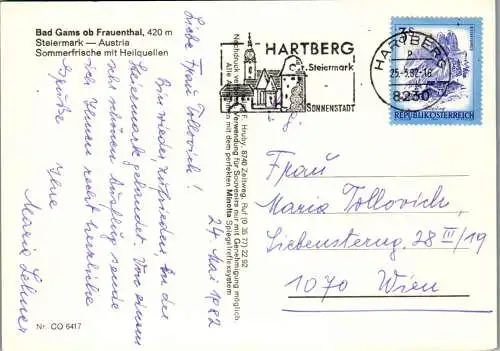 Bad Gams ob Frauenthal, 420 m
Steiermark — Austria
Sommerfrische mit Heilquellen
Liebe Frau Tollovich!
Bin wieder zufrieden, in der
Steiermark gelandet. Von einem
sehr schönen Ausflug sende
ich Ihnen recht herzliche
Grüße Ihre
Maria Lehner
24. Mai 1982
F. Hruby, 8740 Zeltweg, Ruf (0 35 77) 22 92
Nachdruck Verwendung für Souvenirs nur mit Genehmigung möglich.
Alle mit dem perfekten Minolta Spiegelreflexsystem
HARTBERG
Steiermark
SONNENSTADT
HARTBERG
25.-5.82-16
8230
3S
REPUBLIK ÖSTERREICH
Frau
Maria Tollovich
Liebensterng. 28 III/19
1070 Wien
Nr. CO 6417